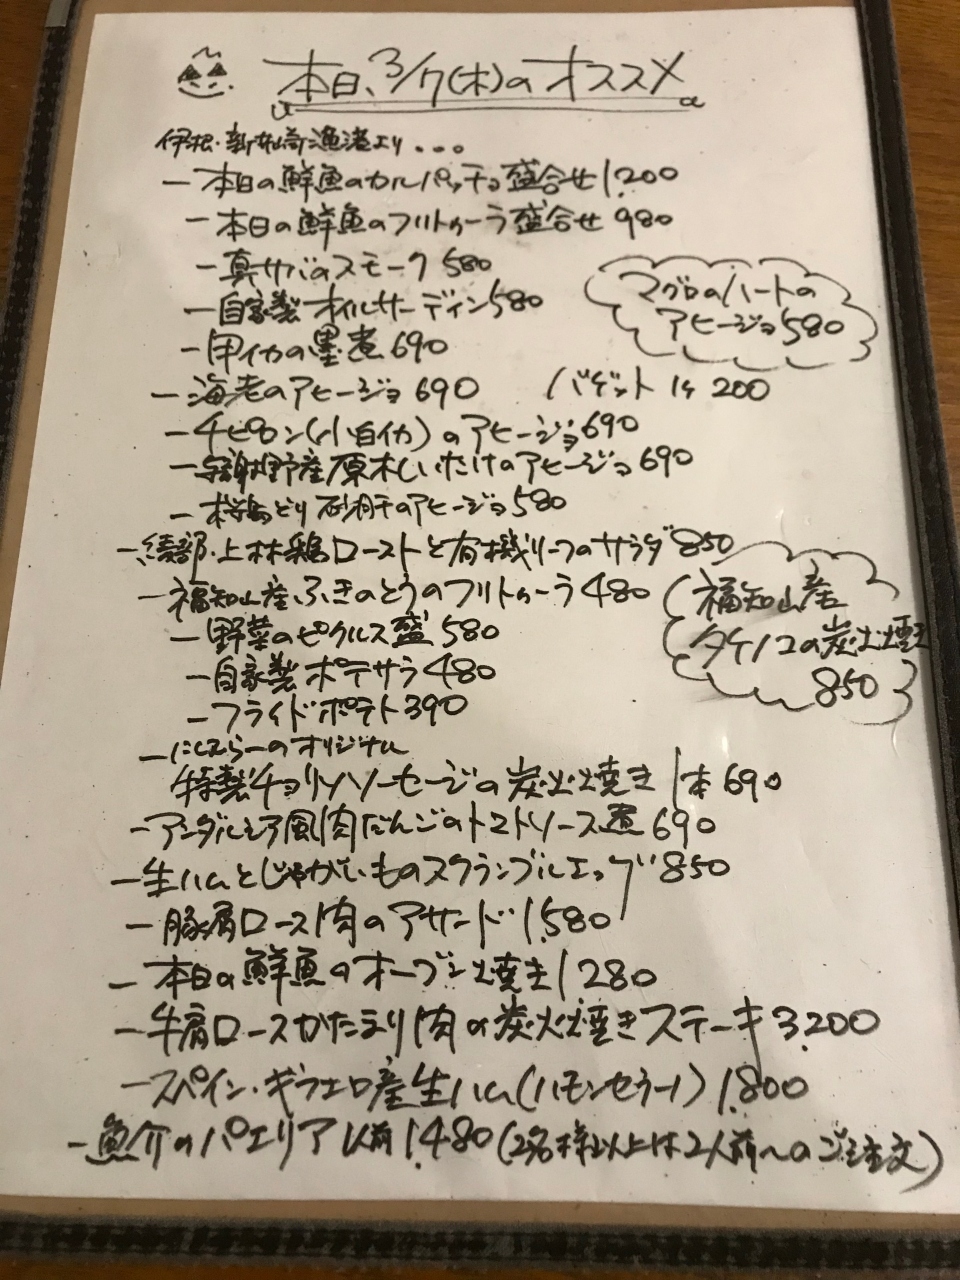 本日、3/7(木)のオススメ
伊根・新井崎漁港より...
ー本日の鮮魚のカルパッチョ盛合せ1,200
ー本日の鮮魚のフリトゥーラ盛合せ 980
ー真サバのスモーク 580
ー自家製オイルサーディン580
マグロのハートの
アヒージョ580
ー甲イカの墨煮690
ー海老のアヒージョ690
バゲット1ケ 200
ーチピロン(小白イカ)のアヒージョ690
ー与謝野産原木しいたけのアヒージョ690
ー桜島どり砂肝のアヒージョ580
ー綾部・上林鶏ローストと有機リーフのサラダ850
ー福知山産ふきのとうのフリトゥーラ480
福知山産
タケノコの炭火焼
850
ー野菜のピクルス盛580
ー自家製ポテサラ480
ーフライドポテト390
オリジナル
特製チョリソソーセージの炭火焼き1本690
ーアンダルシア風肉だんごのトマトソース煮690
ー生ハムとじゃがいものスクランブルエッグ850
ー豚肩ロース肉のアサード1,580
ー本日の鮮魚のオーブン焼き1280
ー牛肩ロースかたまり肉の炭火焼きステーキ3,200
ースペイン・ギフエロ産生ハム(ハモンセラーノ)1,800
ー魚介のパエリア1人前1,480(2名様以上は2人前〜のご注文)